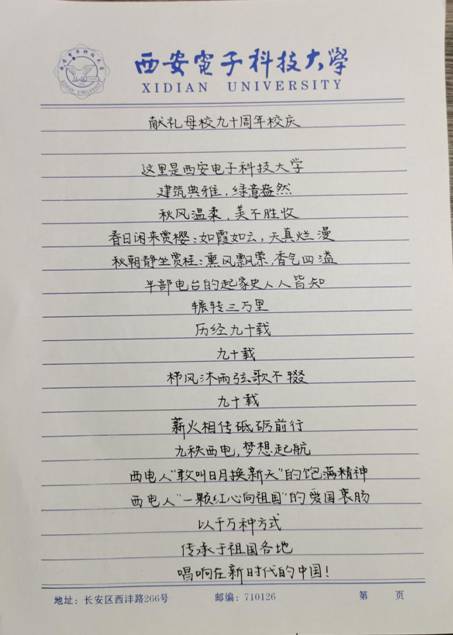 西安电子科技大学
XIDIAN UNIVERSITY
献礼母校九十周年校庆
这里是西安电子科技大学
建筑典雅，绿意盎然
秋风温柔，美不胜收
春日闲来赏樱：如霞如云，天真烂漫
秋朝静坐赏桂：熏风飘荣，香气四溢
半部电台的起家史人人皆知
辗转三万里
历经九十载
九十载
栉风沐雨弦歌不辍
九十载
薪火相传砥砺前行
九秩西电，梦想起航
西电人“敢叫日月换新天”的饱满精神
西电人“一颗红心向祖国”的爱国衷肠
以千万种方式
传承于祖国各地
唱响在新时代的中国！
地址：长安区西沣路266号 邮编：710126 第 页